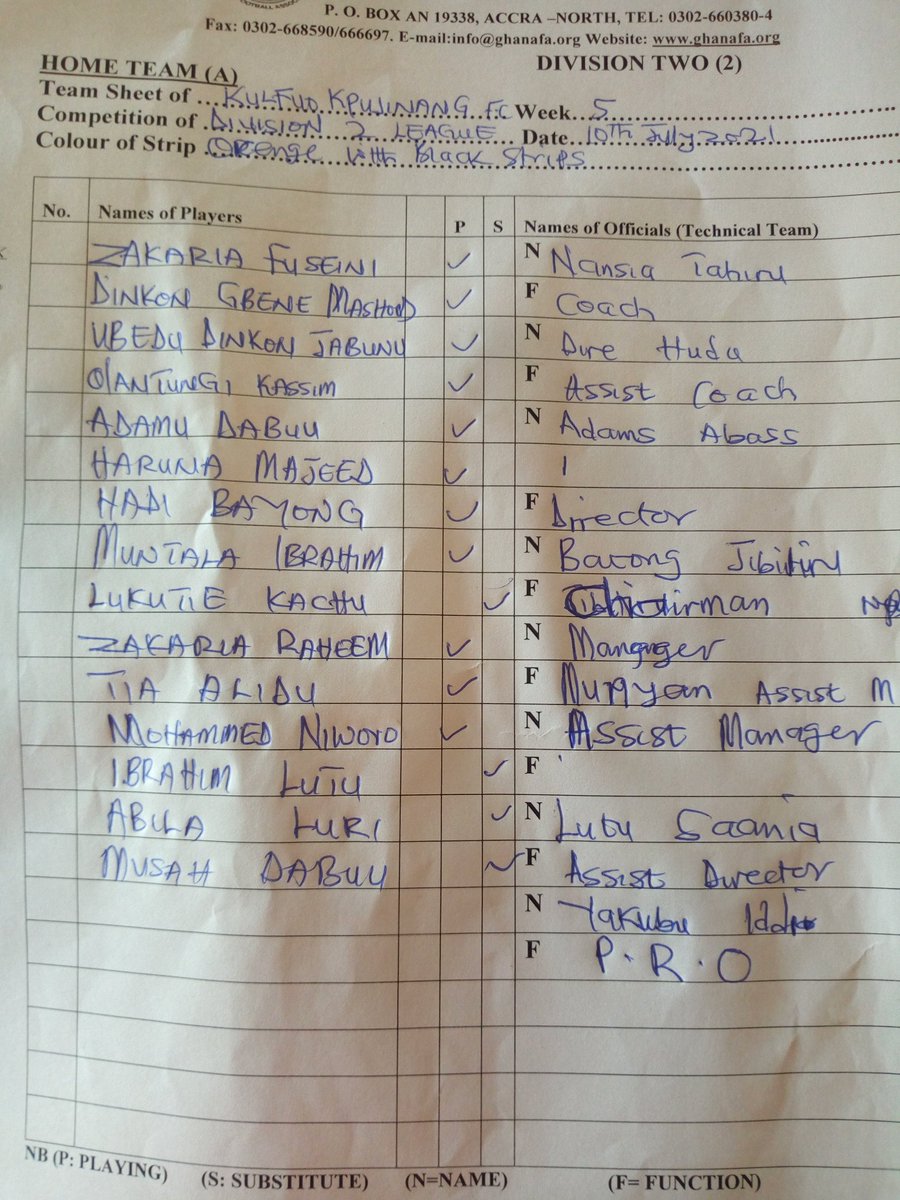 FOOTBALL ASSOC
P. O. BOX AN 19338, ACCRA –NORTH, TEL: 0302-660380-4
Fax: 0302-668590/666697. E-mail:info@ghanafa.org Website: www.ghanafa.org
HOME TEAM (A) DIVISION TWO (2)
Team Sheet of KULFUO KPUJINANG F.C Week 5
Competition of DIVISION 2 LEAGUE Date 10th July 2021
Colour of Strip Orenge with Black Strips
No. Names of Players P S Names of Officials (Technical Team)
ZAKARIA FUSEINI ✓ N Nansia Tahiru
DINKON GBENE MASHOOD ✓ F Coach
UBEDU DINKON JABUNU ✓ N Dure Huda
OLANTUNGI KASSIM ✓ F Assist Coach
ADAMU DABUU ✓ N Adams Abass
HARUNA MAJEED ✓
HADI BAYONG ✓ F Dirrector
MUNTALA IBRAHIM ✓ N Bacong Jibiliru
LUKUTIE KACHU ✓ F irman
ZAKARIA RAHEEM ✓ N Manager
TIA ALIDU ✓ F Assist M
MOHAMMED NIWOYO ✓ N Assist Manager
IBRAHIM LUTU ✓ F
ABULA LURI ✓ N Lutu Saania
MUSAH DABUU ✓ F Assist Director
N Yakubu Iddi
F P.R.O
NB (P: PLAYING) (S: SUBSTITUTE) (N=NAME) (F= FUNCTION)